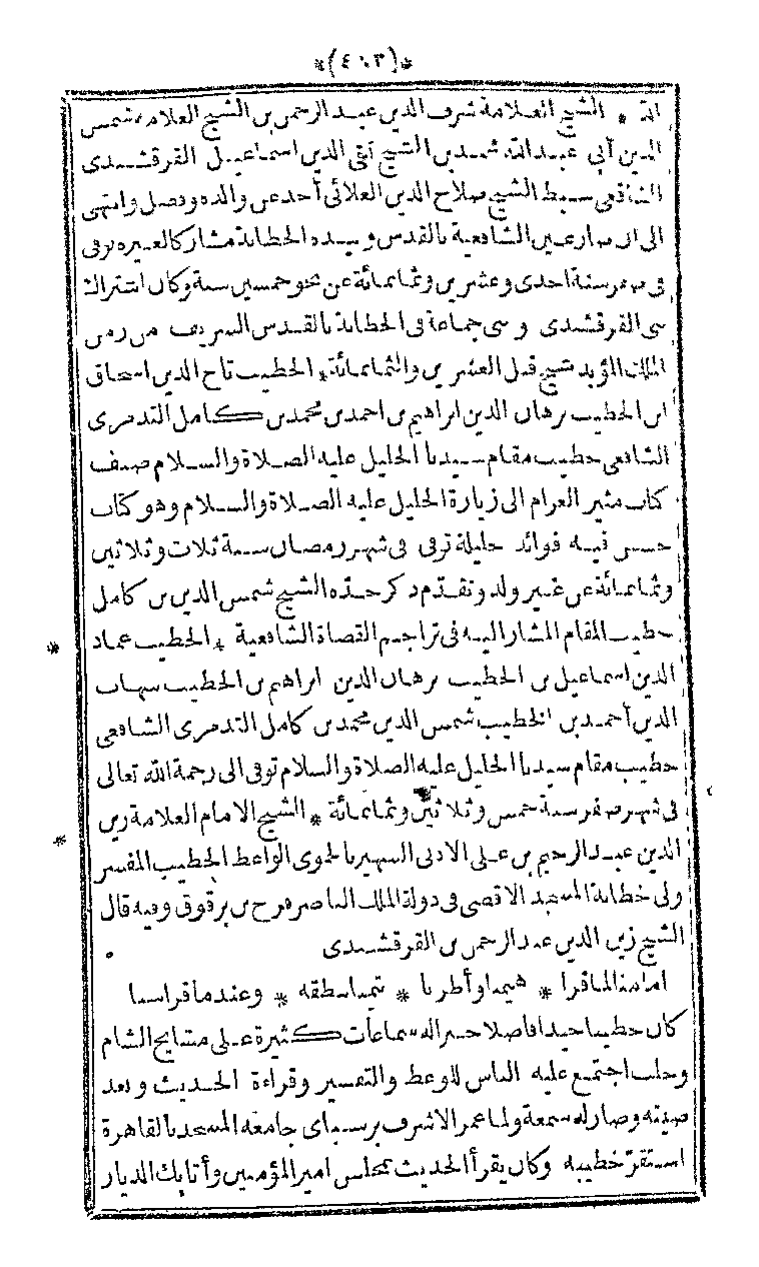 *(٤٠٣)*
الله * الشيخ العلامة شرف الدين عبد الرحمن بن الشيخ العلامة شمس
الدين أبي عبد الله محمد بن الشيخ تقي الدين اسماعيل القرقشندى
الشافعي سبط الشيخ صلاح الدين العلائى أخذ عن والده وفضل وانتهى
الى ان صار عين الشافعية بالقدس وبيده الخطابة مشاركا لغيره توفى
فى صفر سنة احدى وعشرين وثمانمائة عن نحو خمسين سنة وكان اشتراك
بنى القرقشندى وبنى جماعة فى الخطابة بالقدس الشريف من زمن
الملك المؤيد شيخ قبل العشرين والثمانمائة * الخطيب تاج الدين اسحاق
ابن الخطيب برهان الدين ابراهيم بن احمد بن محمد بن كامل التدمرى
الشافعى خطيب مقام سيدنا الخليل عليه الصلاة والسلام صنف
كتاب مثير الغرام الى زيارة الخليل عليه الصلاة والسلام وهو كتاب
حسن فيه فوائد جليلة توفى فى شهر رمضان سنة ثلاث وثلاثين
وثمانمائة عن غير ولد وتقدّم ذكر جدّه الشيخ شمس الدين بن كامل
خطيب المقام المشار اليه فى تراجم القضاة الشافعية * الخطيب عماد
الدين اسماعيل بن الخطيب برهان الدين ابراهيم بن الخطيب شهاب
الدين أحمد بن الخطيب شمس الدين محمد بن كامل التدمرى الشافعى
خطيب مقام سيدنا الخليل عليه الصلاة والسلام توفى الى رحمة الله تعالى
فى شهر صفر سنة خمس وثلاثين وثمانمائة * الشيخ الامام العلامة زين
الدين عبد الرحيم بن على الادنى الشهير بالحموى الواعظ الخطيب المفسر
ولى خطابة المسجد الاقصى فى دولة الملك الناصر فرج بن برقوق وفيه قال
الشيخ زين الدين عبد الرحمن بن القرقشندى
امامنا لما قرا * هيما وأطربا * نميا بنطقه * وعندما قراسبا
كان خطيبا جيدا فاضلا خيرا له سماعات كثيرة على مشايخ الشام
وحلب اجتمع عليه الناس للوعظ والتفسير وقراءة الحديث وبعد
صيته وصار له سمعة ولما عمر الاشرف برسباى جامعه المسجد بالقاهرة
استقرّ خطيبه وكان يقرأ الحديث بمجلس امير المؤمنين وأتابك الديار